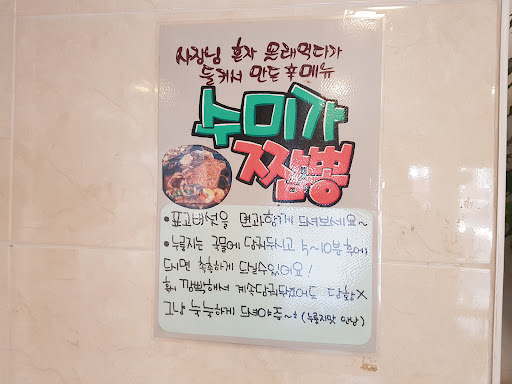 사장님 혼자 몰래먹다가
들켜서 만든 후메뉴
수미가
짬뽕
• 표고버섯을 면과함께 드셔보세요~
• 누룽지는 국물에 담궈두시고 5~10분 후에
드시면 촉촉하게 드실수있어요!
혹시 깜빡해서 계속담궈두셨어도 당황X
그냥 눅눅하게 드셔야죠~! (누룽지맛 안남)